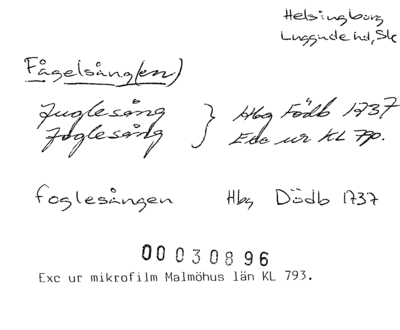 Helsingborg
Luggude hd, Sk
Fågelsång(en)
Fuglesång } Hbg Födb 1737
Foglesång } Exc ur KL 790.
foglesången Hbg Dödb 1737
00 030896
Exc ur mikrofilm Malmöhus län KL 793.